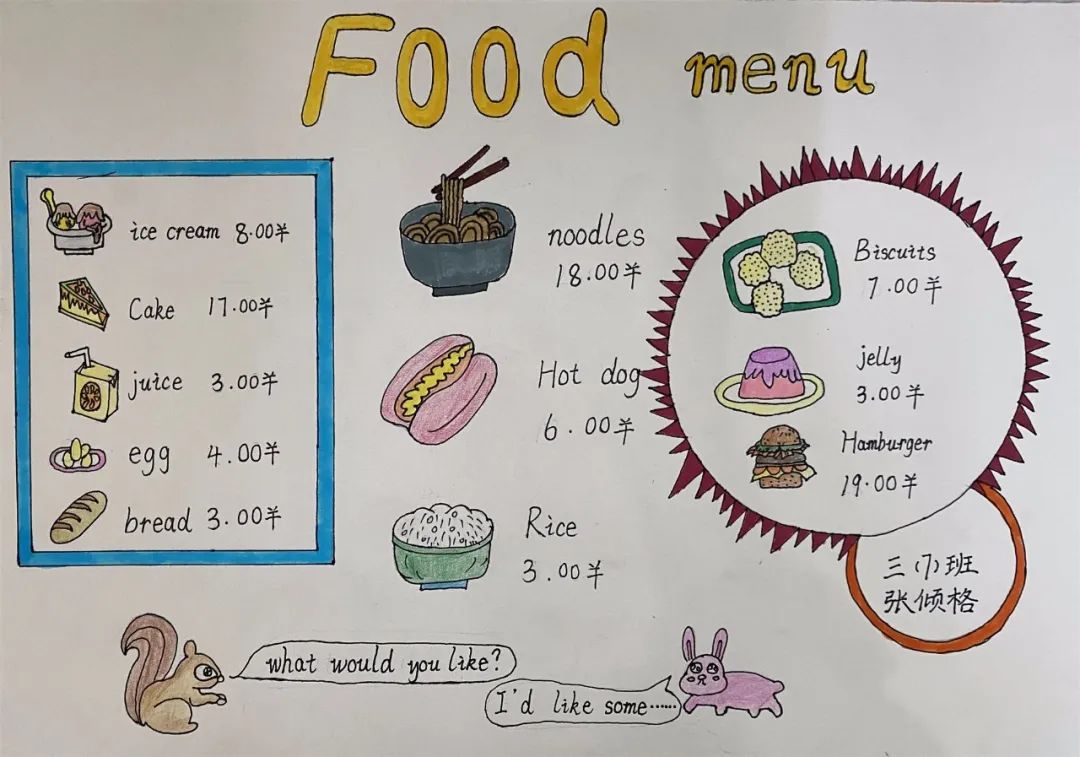 Food menu
ice cream 8.00¥
Cake 17.00¥
juice 3.00¥
egg 4.00¥
bread 3.00¥
noodles
18.00¥
Hot dog
6.00¥
Rice
3.00¥
Biscuits
7.00¥
jelly
3.00¥
Hamburger
19.00¥
三(7)班
张倾格
what would you like?
I'd like some……